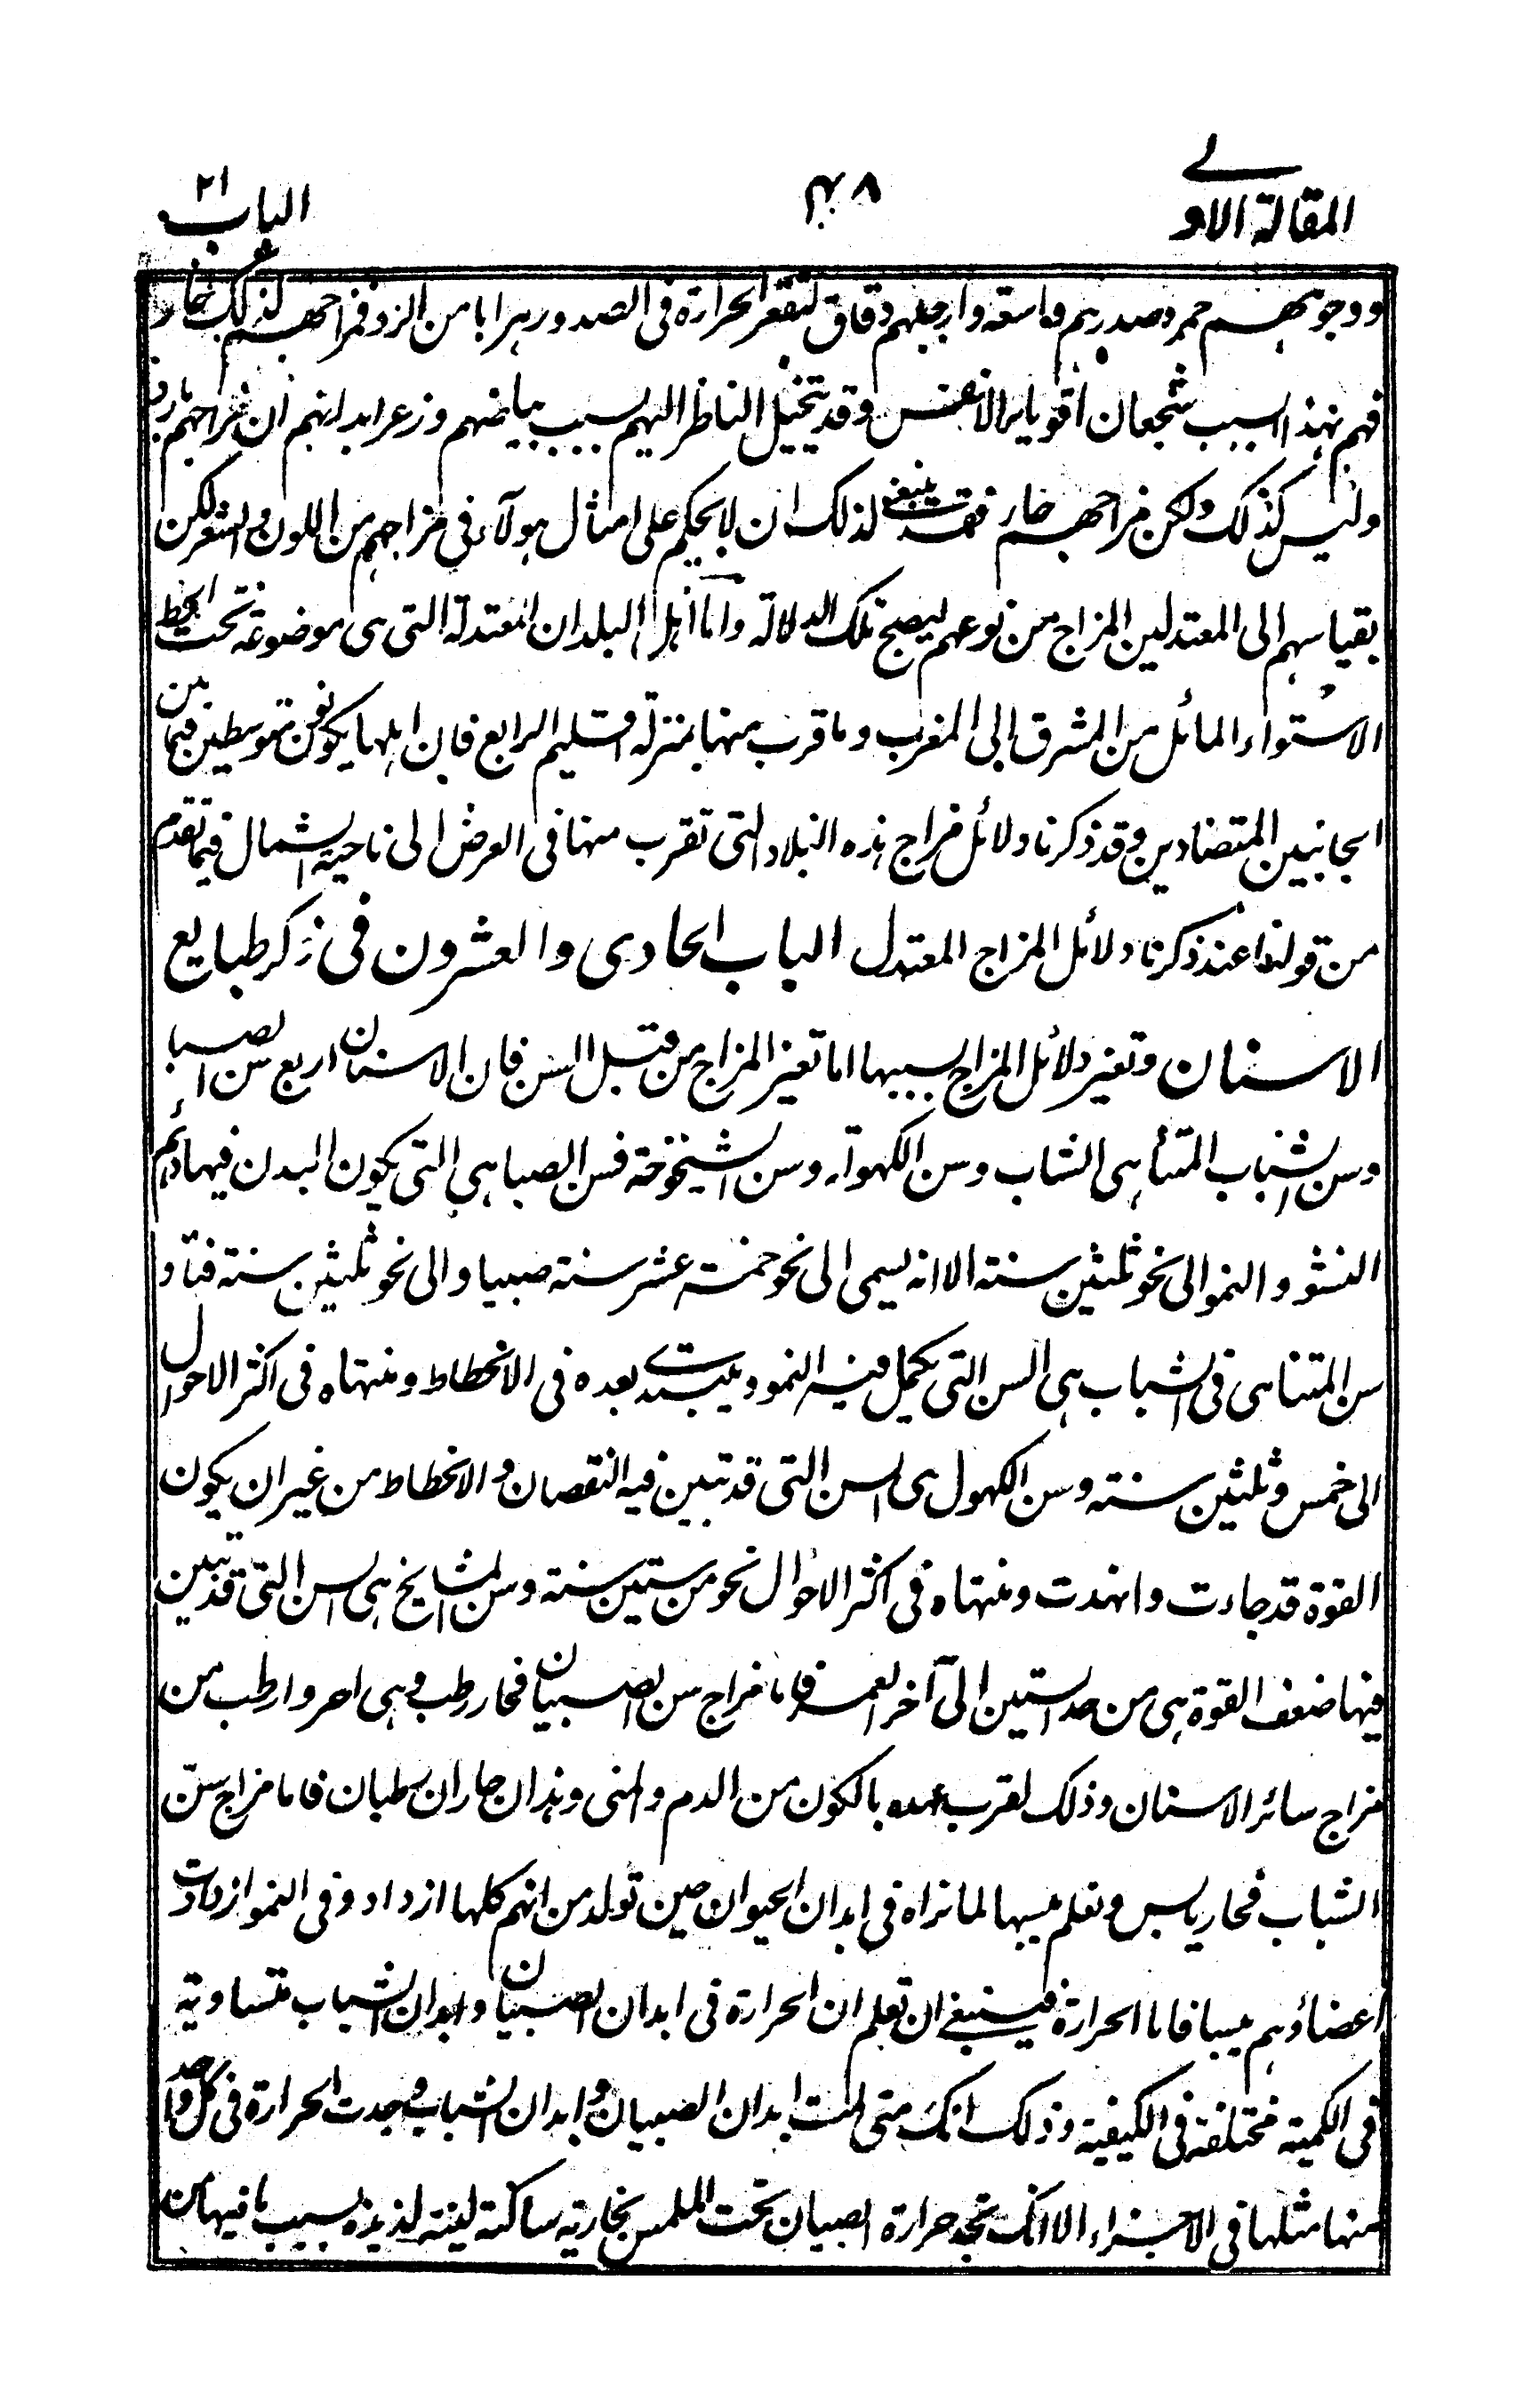 المقالة الاولے
۴۸
الباب ۲۱
ووجوههم حمر وصدورهم واسعة وارجلهم دقاق لتقعر الحرارة فى الصدور هرابا من البرد فمزاجهم لذلك حار
فهم بهذا السبب شجعان اقوياء الانفس وقد يتخيل الناظر اليهم بسبب بياضهم وزعر ابدانهم ان مزاجهم بارد
وليس كذلك ولكن مزاجهم حار فقد ينبغى لذلك ان لا يحكم على امثال هولآء فى مزاجهم من اللون والشعر لكن
بقياسهم الى المعتدلين المزاج من نوعهم ليصح تلك الدلالة واما اهل البلدان المعتدلة التى هى موضوعة تحت الخط
الاستواء المائل من المشرق الى المغرب وما قرب منها بمنزلة اقليم الرابع فان اهلها يكونون متوسطين فيما بين
الجانبين المتضادين وقد ذكرنا دلائل مزاج هذه البلاد التى تقرب منها فى العرض الى ناحية الشمال فيما تقدم
من قولنا عند ذكرنا دلائل المزاج المعتدل الباب الحادى والعشرون فى ذكر طبايع
الاسنان وتغير دلائل المزاج بسببها اما تغير المزاج من قبل السن فان الاسنان اربع سن الصبا
وسن الشباب المتناهى الشاب وسن الكهولة وسن الشيخوخة فسن الصبا هى التى يكون البدن فيها دائم
النشو والنمو الى نحو ثلثين سنته الا انه يسمى الى نحو خمسة عشر سنته صبيا والى نحو ثلثين سنته فتا و
سن المتناهى فى الشباب هى السن التى يكمل فيه النمو ويبتدے بعده فى الانحطاط ومنتهاه فى اكثر الاحوال
الى خمس وثلثين سنته وسن الكهول هى السن التى قد تبين فيه النقصان والانحطاط من غير ان يكون
القوة قد جاءت وانهدت ومنتهاه فى اكثر الاحوال نحو من ستين سنة وسن المشايخ هى السن التى قد تبين
فيها ضعف القوة هى من حد الستين الى آخر العمر فاما مزاج سن الصبيان فحار رطب وهى احر وارطب من
مزاج سائر الاسنان وذلك لقرب عهده بالكون من الدم والمنى وهذان حاران رطبان فاما مزاج سن
الشباب فحار يابس ونعلم يبسها لما نراه فى ابدان الحيوان حين تولد من انهم كلما ازدادو فى النمو ازدادت
اعضاؤهم يبسا فاما الحرارة فينبغى ان تعلم ان الحرارة فى ابدان الصبيان وابدان الشباب متساوية
فى الكمية مختلفة فى الكيفية وذلك انك متى لمست ابدان الصبيان وابدان الشباب وجدت الحرارة فى كل واحد
منها مثلها فى الاجزاء الا انك تجد حرارة الصبيان تحت الملمس بخارية ساكنة لينة لذيذه بسبب ما فيها من